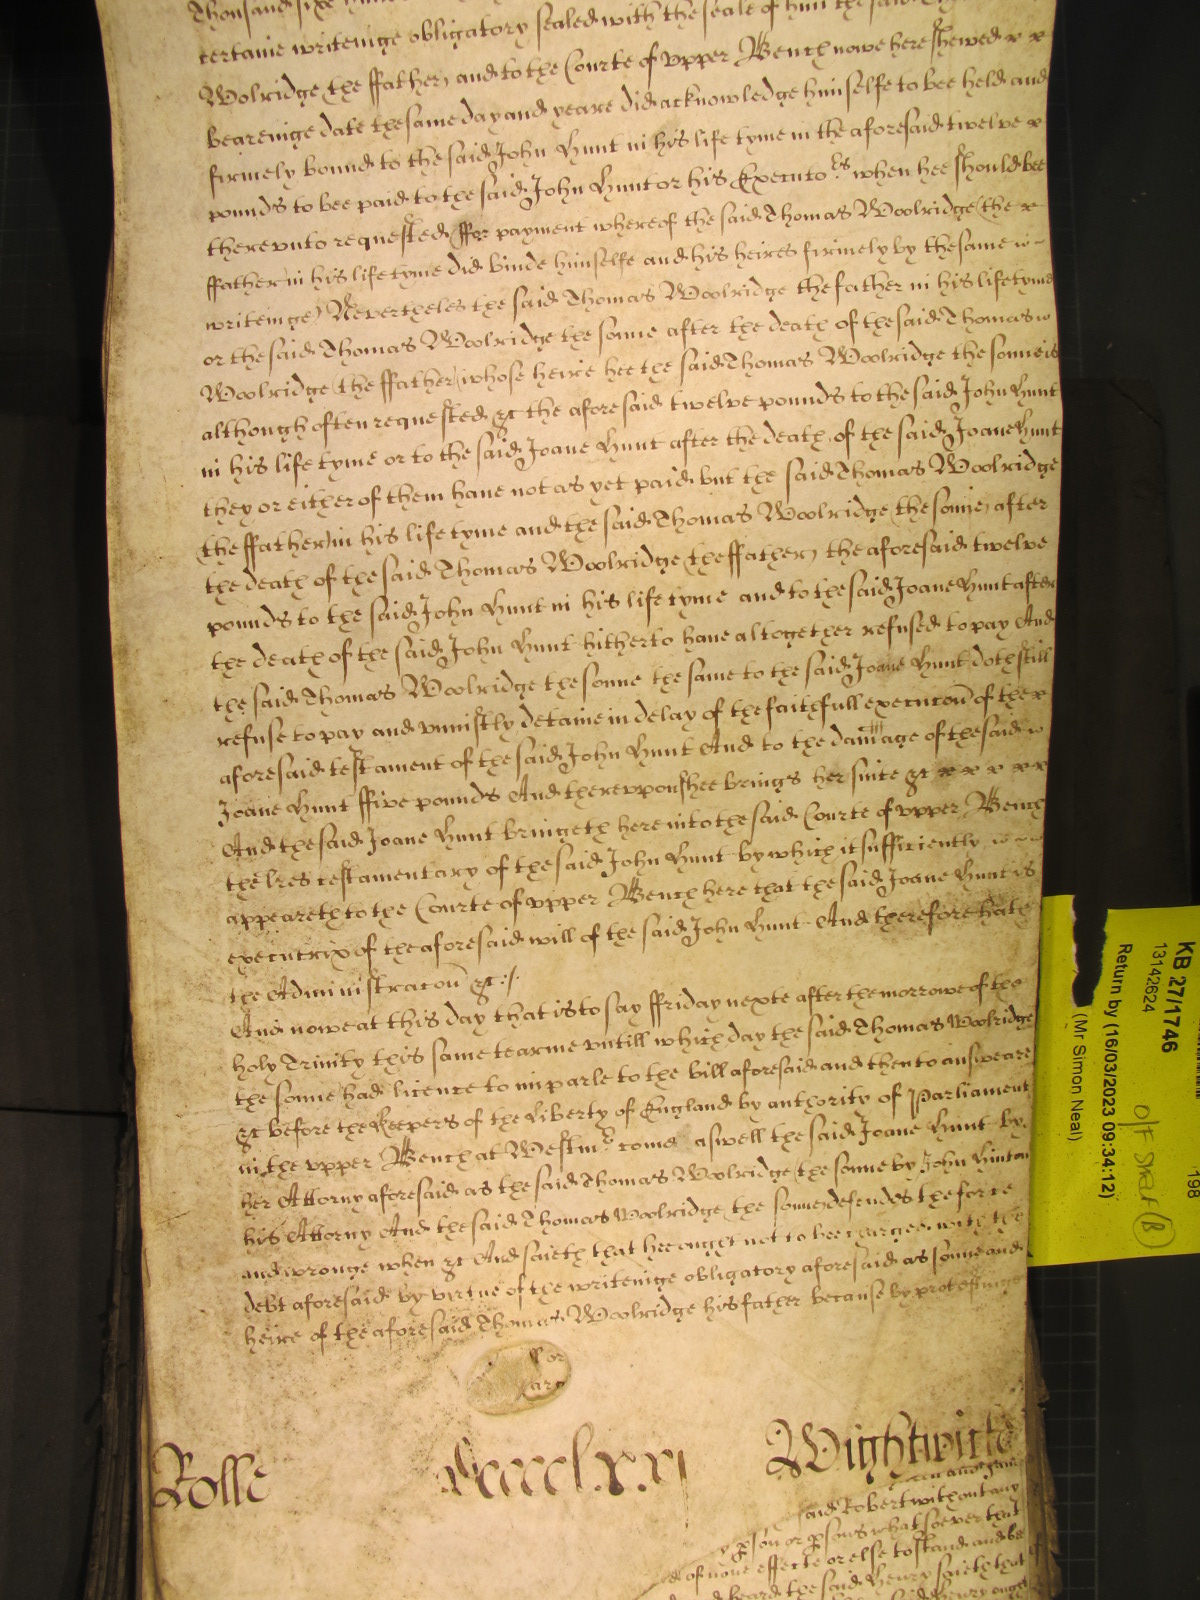 Thousand six
certaine writeinge obligatory sealed with the seale of him the said
Woolridge (the ffather) and to the Courte of vpper Bench nowe here shewed x x
beareinge date the same day and yeare did acknowledge himselfe to bee held and
firmely bound to the said John Hunt in his life tyme in the aforesaid twelve x
pounds to bee paid to the said John Hunt or his Executors when hee should bee
therevnto requested (ffor payment whereof the said Thomas Woolridge (the x
ffather) in his life tyme did binde himselfe and his heires firmely by the same
writeinge) Nevertheles the said Thomas Woolridge the father in his life tyme
or the said Thomas Woolridge the sonne after the death of the said Thomas
Woolridge (the ffather) whose heire hee the said Thomas Woolridge the sonne is
although often requested &c the aforesaid twelve pounds to the said John Hunt
in his life tyme or to the said Joane Hunt after the death of the said Joane Hunt
they or either of them haue not as yet paid but the said Thomas Woolridge
(the ffather) in his life tyme and the said Thomas Woolridge (the sonne) after
the death of the said Thomas Woolridge (the ffather) the aforesaid twelve
pounds to the said John Hunt in his life tyme and to the said Joane Hunt after
the death of the said John Hunt hitherto haue altogether refused to pay And
the said Thomas Woolridge the sonne the same to the said Joane Hunt doth still
refuse to pay and vniustly detaine in delay of the faithfull execucon of the x
aforesaid testament of the said John Hunt And to the damage of the said
Joane Hunt ffive pounds And therevpon shee brings her suite &c x x x x x
And the said Joane Hunt bringeth here into the said Courte of vpper Bench
the lres testamentary of the said John Hunt by which it sufficiently
appeareth to the Courte of vpper Bench here that the said Joane Hunt is
executrix of the aforesaid will of the said John Hunt And therefore hath
the Administracon &c
And nowe at this day that is to say ffriday nexte after the morrowe of the
holy Trinity this same tearme vntill which day the said Thomas Woolridge
the sonne had licence to imparle to the bill aforesaid and then to answeare
&c before the Keepers of the Liberty of England by authority of Parliament
in the vpper Bench at Westmr come aswell the said Joane Hunt by
her Attorny aforesaid as the said Thomas Woolridge (the sonne by John Hinton
his Attorny And the said Thomas Woolridge (the sonne) defendes the force
and wronge when &c And saieth that hee ought not to bee charged with the
debt aforesaid by virtue of the writeinge obligatory aforesaid as sonne and
heire of the aforesaid Thomas Woolridge his father because by protestinge
ffor
Rolle
Wightwick
said Robert without any
pson or psons whatsoever that
of none effecte or else to stand and bee
heard the said Henry saieth that
KB 27/1746
13142624
Return by (16/03/2023 09:34:12)
(Mr Simon Neal)
198
O/F Shelf (B)